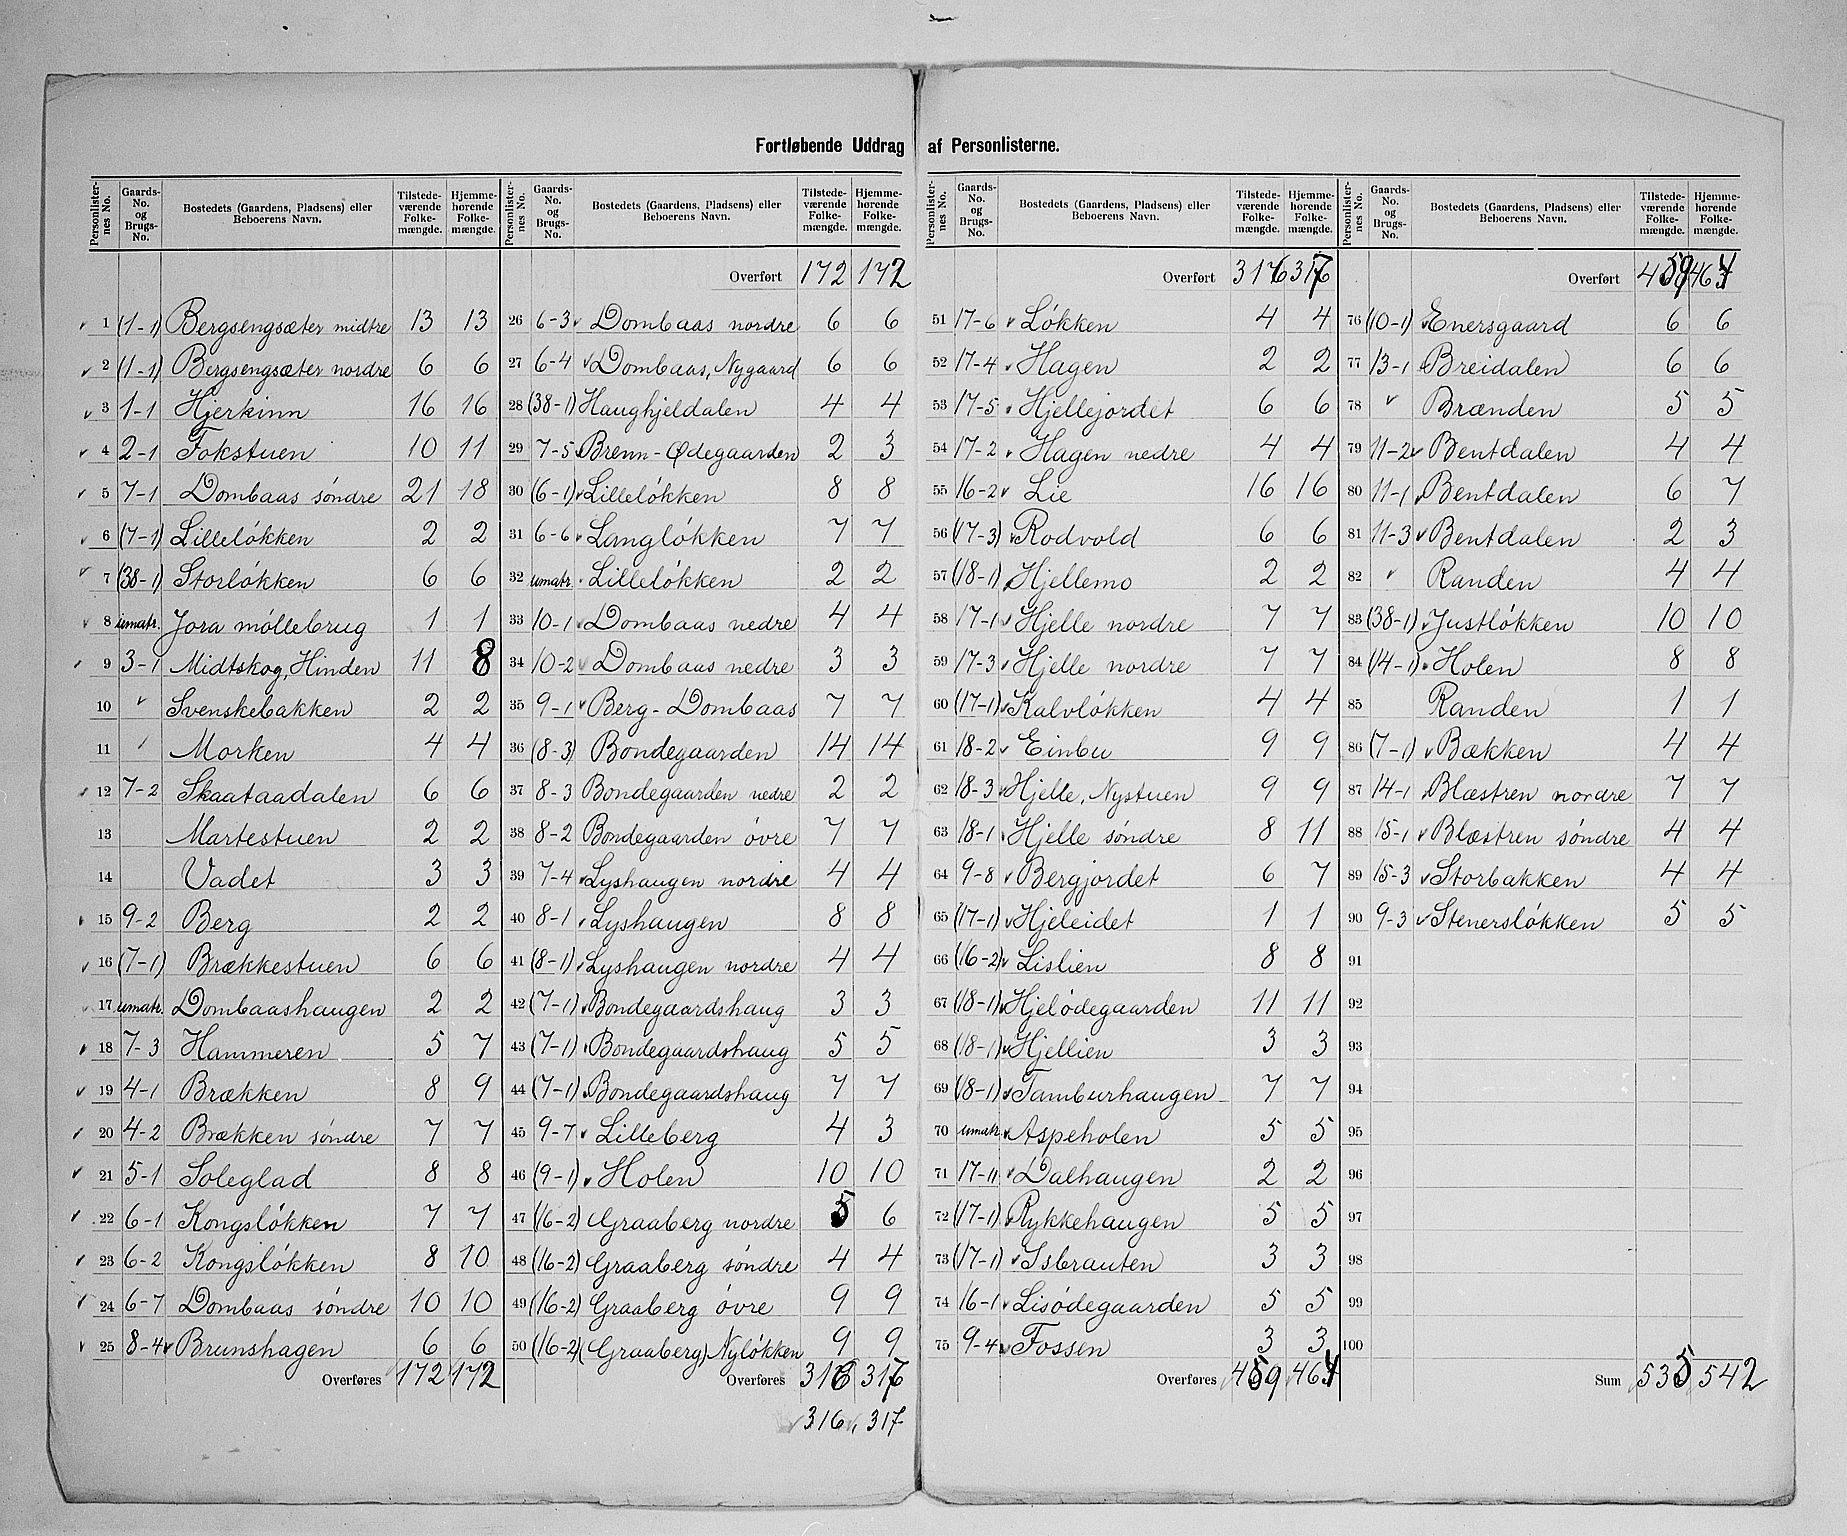 Fortløbende Uddrag af Personlisterne.
Personlister-nes No. | Gaards-No. og Brugs-No. | Bostedets (Gaardens, Pladsens) eller Beboerens Navn. | Tilstede-værende Folke-mængde. | Hjemme-hørende Folke-mængde.
1 (1-1) Bergsengsæter midtre 13 13
2 (1-1) Bergsengsæter nordre 6 6
3 1-1 Hjerkinn 16 16
4 2-1 Fokstuen 10 11
5 7-1 Dombaas söndre 21 18
6 (7-1) Lilleløkken 2 2
7 (38-1) Storløkken 6 6
8 umatr. Jora møllebrug 1 1
9 3-1 Midtskog, Hinden 11 8
10 " Svenskebakken 2 2
11 " Morken 4 4
12 7-2 Skaataadalen 6 6
13 Martestuen 2 2
14 Vadet 3 3
15 9-2 Berg 2 2
16 (7-1) Brækkestuen 6 6
17 umatr. Dombaashaugen 2 2
18 7-3 Hammeren 5 7
19 4-1 Brækken 8 9
20 4-2 Brækken söndre 7 7
21 5-1 Soleglad 8 8
22 6-1 Kongsløkken 7 7
23 6-2 Kongsløkken 8 10
24 6-7 Dombaas söndre 10 10
25 8-4 Brunshagen 6 6
Overføres 172 172
Personlister-nes No. | Gaards-No. og Brugs-No. | Bostedets (Gaardens, Pladsens) eller Beboerens Navn. | Tilstede-værende Folke-mængde. | Hjemme-hørende Folke-mængde.
Overført 172 172
26 6-3 Dombaas nordre 6 6
27 6-4 Dombaas, Nygaard 6 6
28 (38-1) Haughjeldalen 4 4
29 7-5 Brenn-Ødegaarden 2 3
30 (6-1) Lilleløkken 8 8
31 6-6 Langløkken 7 7
32 umatr. Lilleløkken 2 2
33 10-1 Dombaas nedre 4 4
34 10-2 Dombaas nedre 3 3
35 9-1 Berg-Dombaas 7 7
36 (8-3) Bondegaarden 14 14
37 8-3 Bondegaarden nedre 2 2
38 8-2 Bondegaarden övre 7 7
39 7-4 Lyshaugen nordre 4 4
40 8-1 Lyshaugen 8 8
41 (8-1) Lyshaugen nordre 4 4
42 (7-1) Bondegaardshaug 3 3
43 (7-1) Bondegaardshaug 5 5
44 (7-1) Bondegaardshaug 7 7
45 9-7 Lilleberg 4 3
46 (9-1) Holen 10 10
47 (16-2) Graaberg nordre 5 6
48 (16-2) Graaberg söndre 4 4
49 (16-2) Graaberg övre 9 9
50 (16-2) (Graaberg) Nyløkken 9 9
Overføres 316 317
316 317
Personlister-nes No. | Gaards-No. og Brugs-No. | Bostedets (Gaardens, Pladsens) eller Beboerens Navn. | Tilstede-værende Folke-mængde. | Hjemme-hørende Folke-mængde.
Overført 316 317
51 17-6 Løkken 4 4
52 17-4 Hagen 2 2
53 17-5 Hjellejordet 6 6
54 17-2 Hagen nedre 4 4
55 16-2 Lie 16 16
56 (17-3) Rodvold 6 6
57 (18-1) Hjellemo 2 2
58 17-1 Hjelle nordre 7 7
59 17-3 Hjelle nordre 7 7
60 (17-1) Kalvløkken 4 4
61 18-2 Einbu 9 9
62 18-3 Hjelle, Nystuen 9 9
63 18-1 Hjelle söndre 8 11
64 9-8 Bergjordet 6 7
65 (17-1) Hjeleidet 1 1
66 (16-2) Lislien 8 8
67 (18-1) Hjelødegaarden 11 11
68 (18-1) Hjellien 3 3
69 (18-1) Tamburhaugen 7 7
70 umatr. Aspeholen 5 5
71 17-11 Dalhaugen 2 2
72 (17-1) Rykkehaugen 5 5
73 (17-1) Isbrauten 3 3
74 16-1 Lisødegaarden 5 5
75 9-4 Fossen 3 3
Overføres 459 464
Personlister-nes No. | Gaards-No. og Brugs-No. | Bostedets (Gaardens, Pladsens) eller Beboerens Navn. | Tilstede-værende Folke-mængde. | Hjemme-hørende Folke-mængde.
Overført 459 464
76 (10-1) Enersgaard 6 6
77 13-1 Breidalen 6 6
78 " Brænden 5 5
79 11-2 Bentdalen 4 4
80 11-1 Bentdalen 6 7
81 11-3 Bentdalen 2 3
82 " Randen 4 4
83 (38-1) Justløkken 10 10
84 (14-1) Holen 8 8
85 Randen 1 1
86 (7-1) Bækken 4 4
87 14-1 Blæstren nordre 7 7
88 15-1 Blæstren söndre 4 4
89 15-3 Storbakken 4 4
90 9-3 Stenersløkken 5 5
91
92
93
94
95
96
97
98
99
100
Sum 535 542